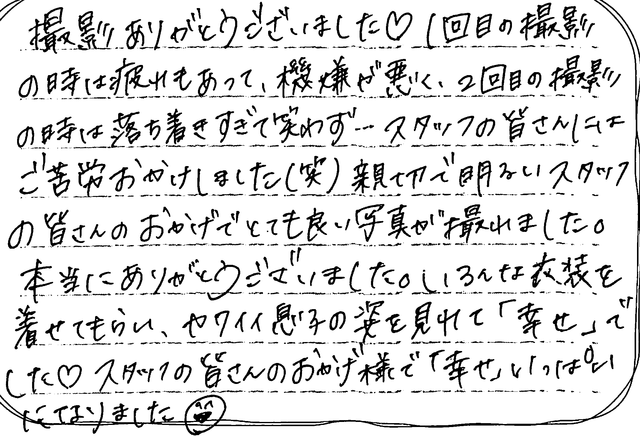 撮影ありがとうございました♡ 1回目の撮影
の時は疲れもあって、機嫌が悪く、2回目の撮影
の時は落ち着きすぎて笑わず…スタッフの皆さんには
ご苦労おかけしました(笑) 親切で明るいスタッフ
の皆さんのおかげでとても良い写真が撮れました。
本当にありがとうございました。いろんな衣装を
着せてもらい、カワイイ息子の姿を見れて「幸せ」で
した♡ スタッフの皆さんのおかげ様で「幸せ」いっぱい
になりました